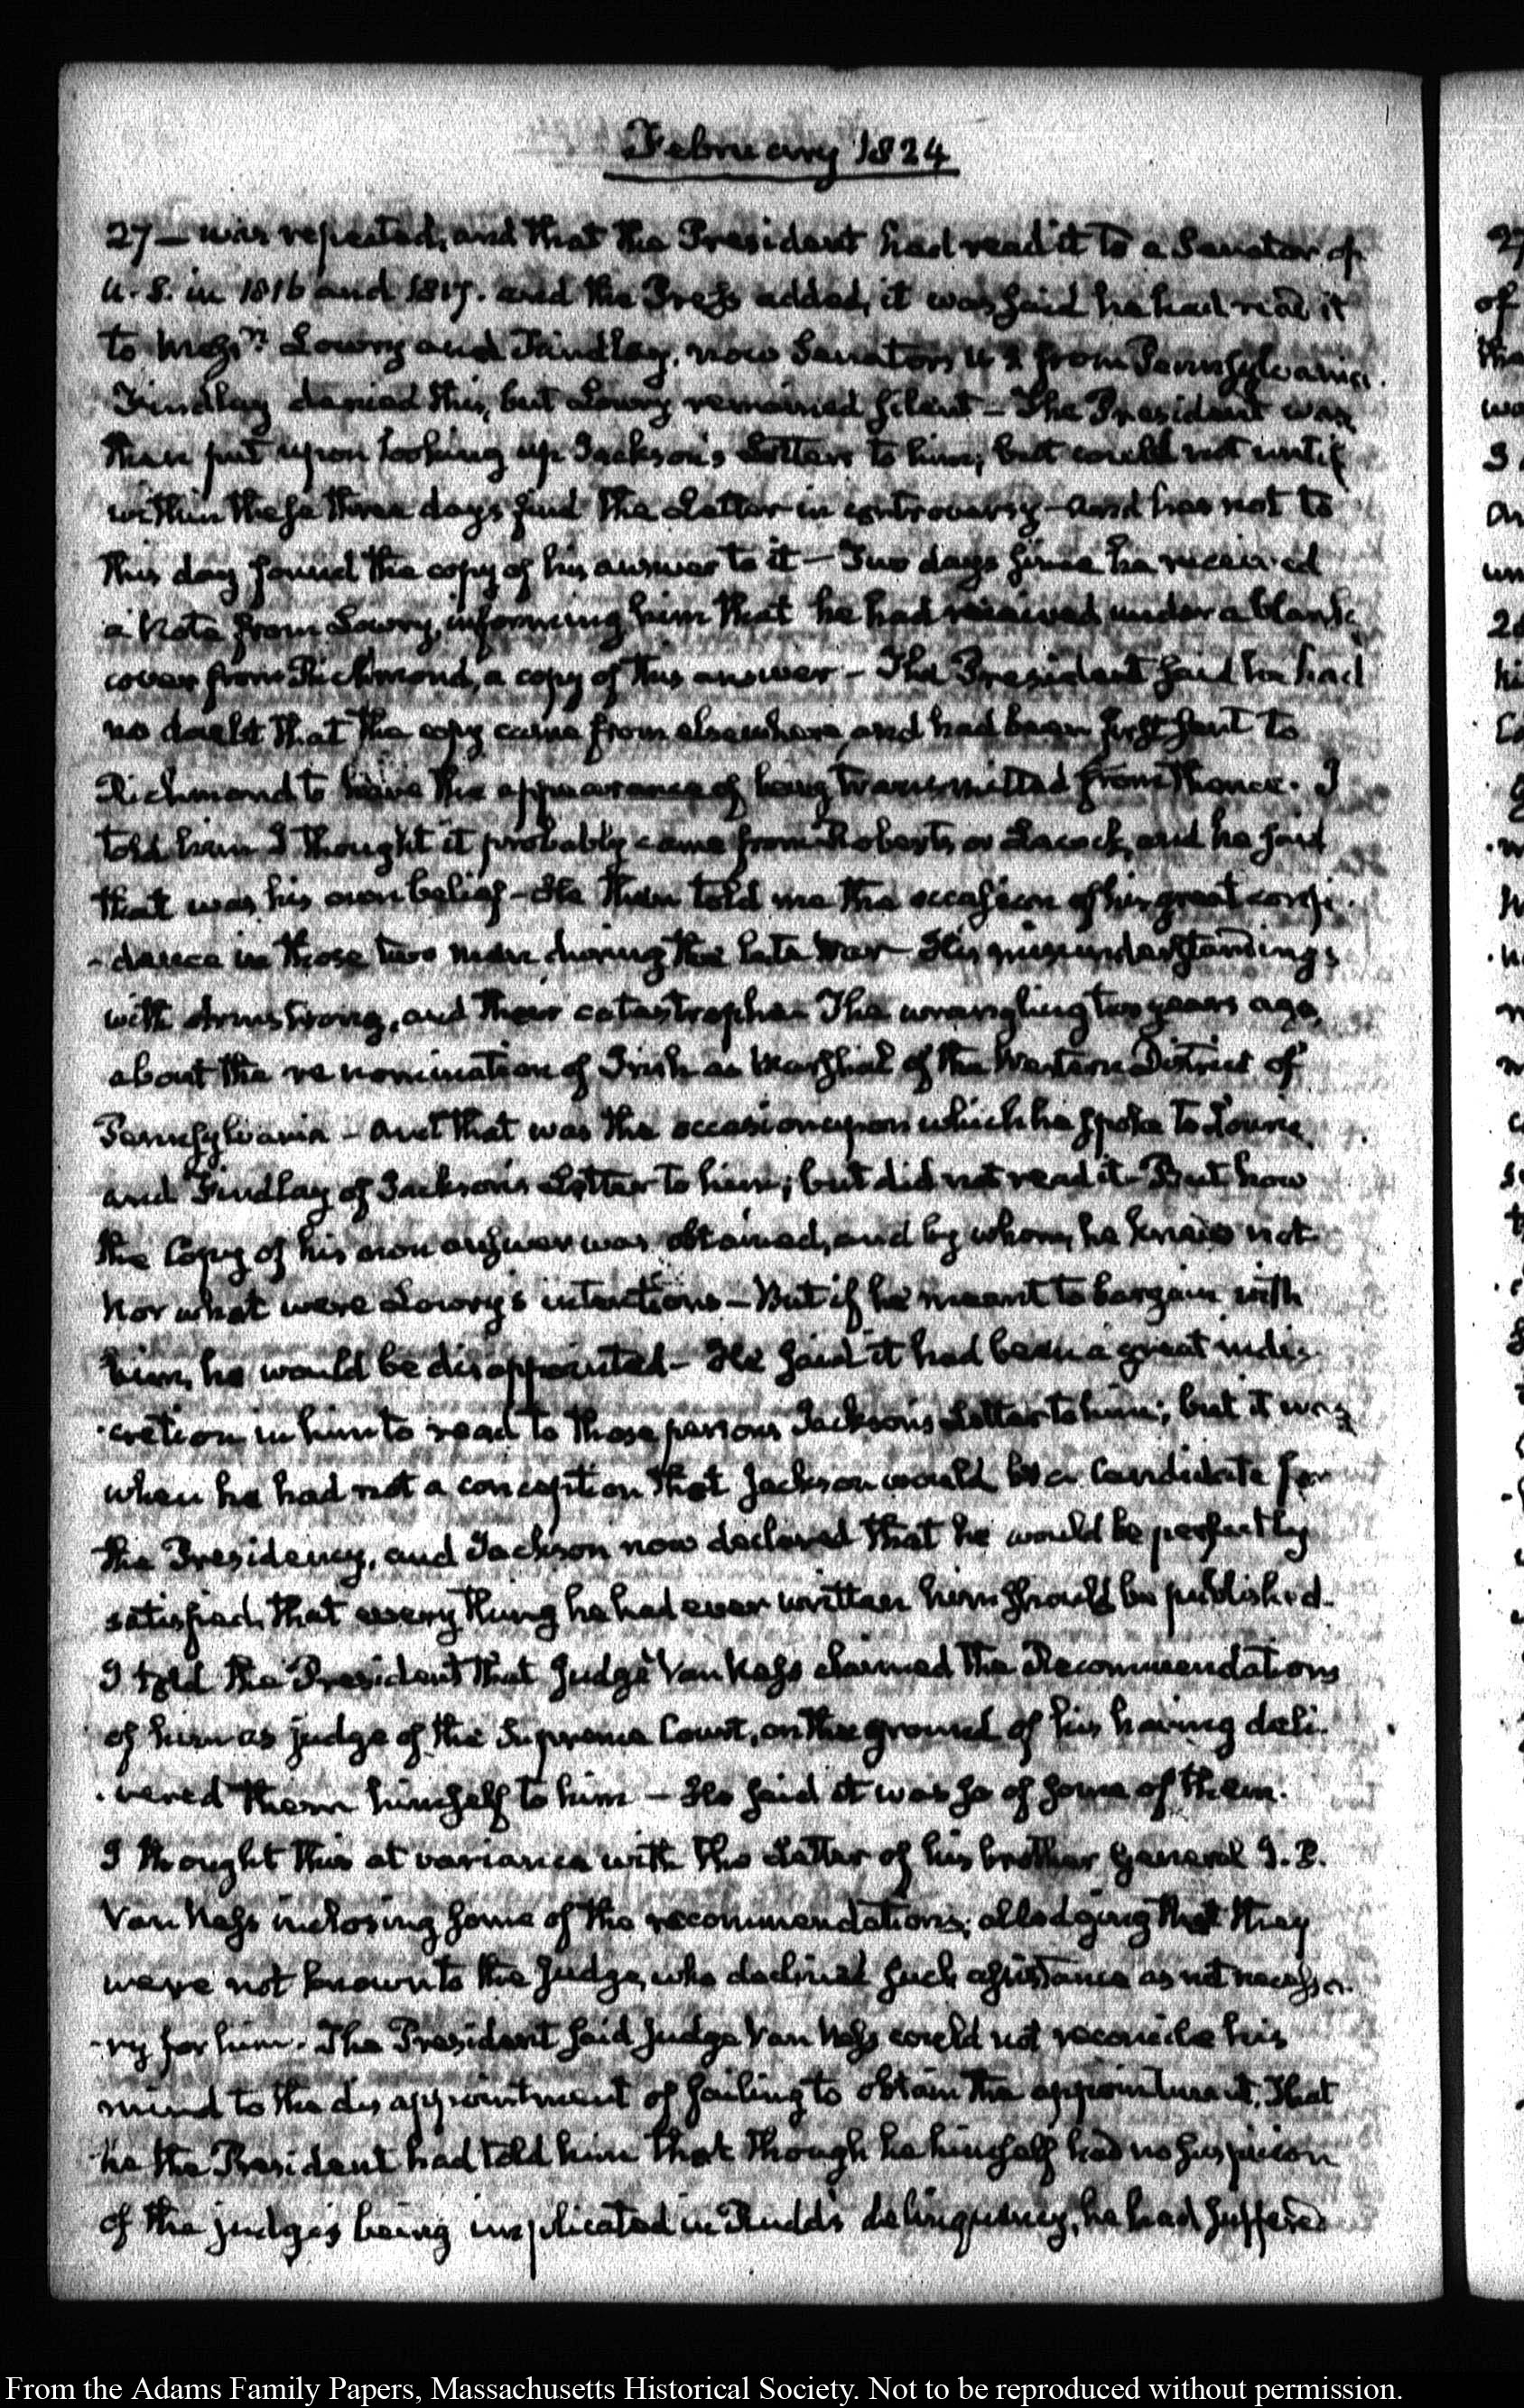 February 1824
27 — was repeated, and that the President had read it to a Senator of
U.S. in 1816 and 1817. and the Press added, it was said he had read it
to Messrs. Lowry and Findlay, now Senators U S from Pennsylvania.
Findlay denied this, but Lowry remained silent — The President was
then put upon looking up Jackson's Letters to him; but could not until
within these three days find the Letter in controversy — and has not to
this day found the copy of his answer to it — Two days since he received
a Note from Lowry, informing him that he had received under a blank
cover from Richmond, a copy of this answer — The President said he had
no doubt that the copy came from elsewhere, and had been first sent to
Richmond to have the appearance of being transmitted from thence. I
told him I thought it probably came from Roberts or Lacock, and he said
that was his own belief — He then told me the occasion of his great confi-
-dence in those two men during the late War — His misunderstandings
with Armstrong, and their catastrophe — The wrangling two years ago,
about the renomination of Irish as Marshal of the Western District of
Pennsylvania — and that was the occasion upon which he spoke to Lowrie
and Findlay of Jackson's Letter to him; but did not read it — But how
the Copy of his own answer was obtained, and by whom, he knew not
Nor what were Lowry's intentions — But if he meant to bargain with
him, he would be disappointed — He said it had been a great indis-
-cretion in him to read to those persons Jackson's Letter to him; but it was
when he had not a conception that Jackson would be a Candidate for
the Presidency, and Jackson now declared that he would be perfectly
satisfied, that every thing he had ever written him should be published.
I told the President that Judge Van Ness claimed the Recommendations
of him as judge of the Supreme Court, on the ground of his having deli-
-vered them himself to him — He said it was so of some of them.
I thought this at variance with the Letter of his brother General J. P.
Van Ness inclosing some of the recommendations; alledging that they
were not known to the Judge, who declined such assistance as not necessa-
-ry for him. The President said Judge Van Ness could not reconcile his
mind to the disappointment of failing to obtain the appointment. That
he the President had told him that though he himself had no suspicion
of the judge's being implicated in Rudd's delinquency, he had suffered
27
of